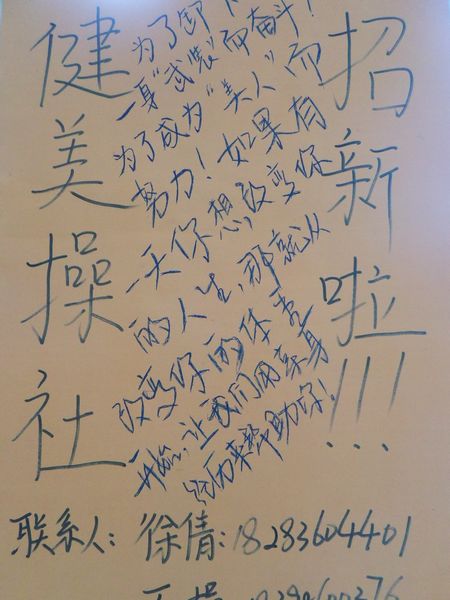 健美操社
为了卸下
一身“武装”而奋斗！
为了成为“美人”而
努力！如果有
一天你想改变你
的人生，那就从
改变你的体重
开始，让我们用亲身
经历来帮助你！
招新啦!!!
联系人：徐倩：18283604401